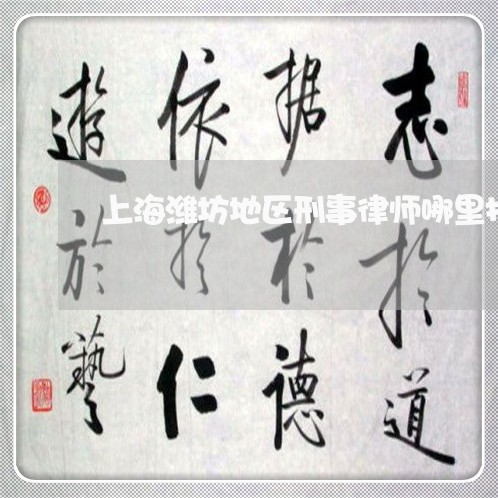 志於道
据於德
依於仁
遊於藝
上海潍坊地区刑事律师哪里